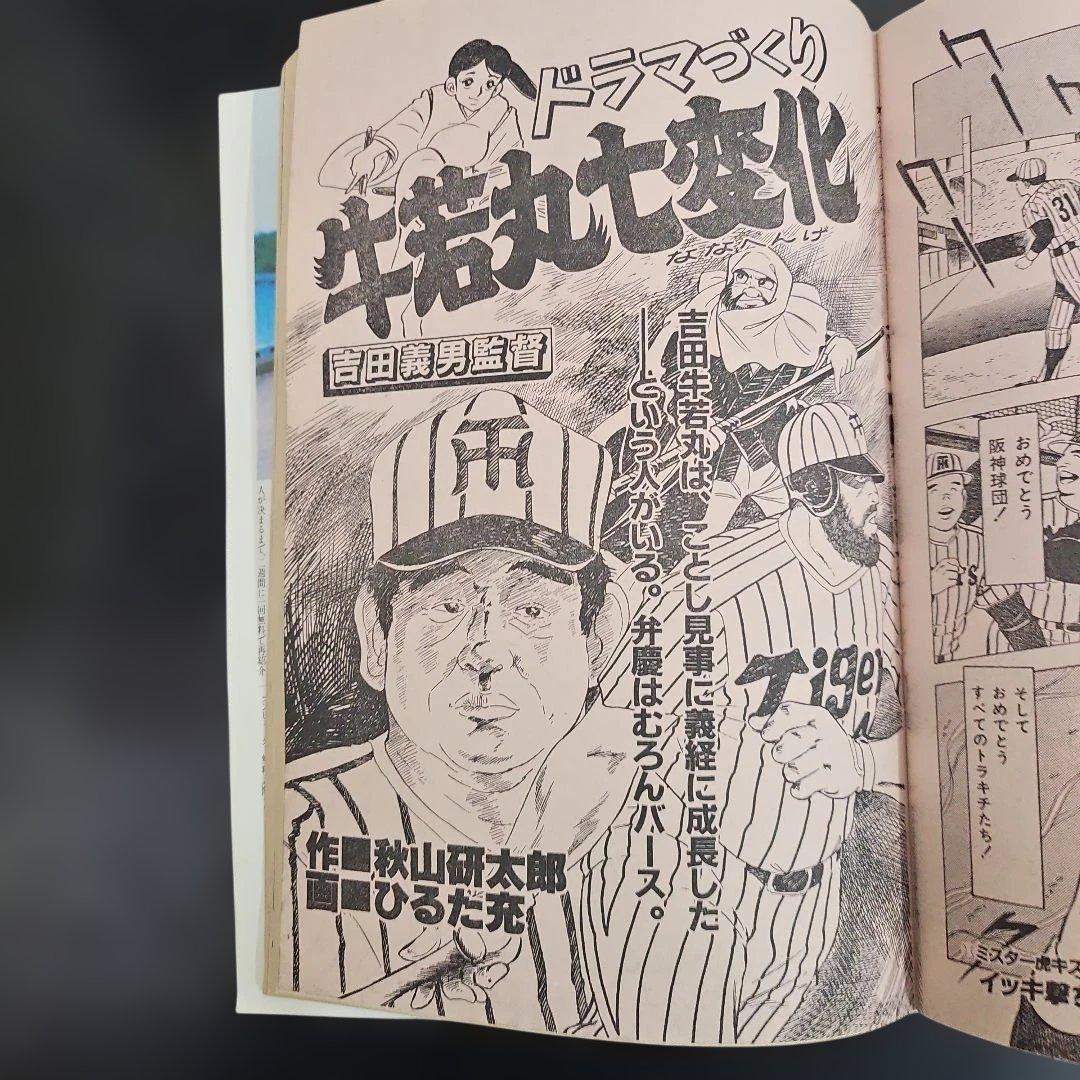 ドラマづくり
牛若丸七変化
ななへんげ
吉田義男監督
吉田牛若丸は、ことし見事に義経に成長した
――という人がいる。弁慶はむろんバース。
作■秋山研太郎
画■ひるた充
Tiger
31
おめでとう
阪神球団!
そして
おめでとう
すべてのトラキチたち!
ミスター虎キズ
イッキ撃
人が決まるまで、二週間に一回無料で再紹介